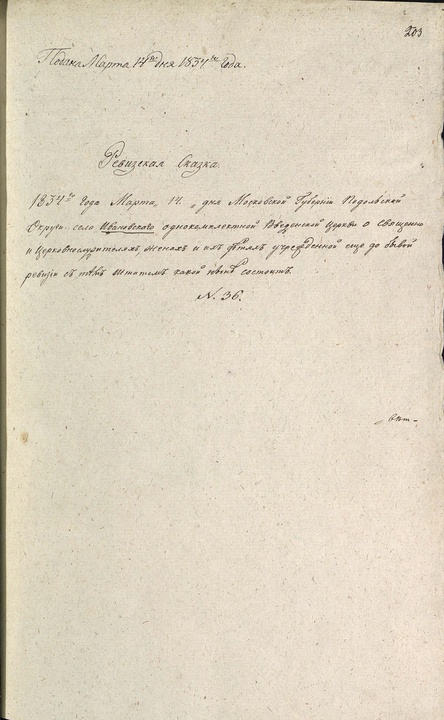 203
Подана Марта 14го дня 1834го Года.
Ревизская Сказка
1834го Года Марта, 14 „ дня Московской Губернии Подольской
Округи села Ивановского однокомплектной Введенской Церкви о священно
и церковнослужителяхъ, женахъ и ихъ детяхъ учрежденной еще до 8мой
ревизии съ темъ штатомъ какой ныне состоитъ.
N. 36.